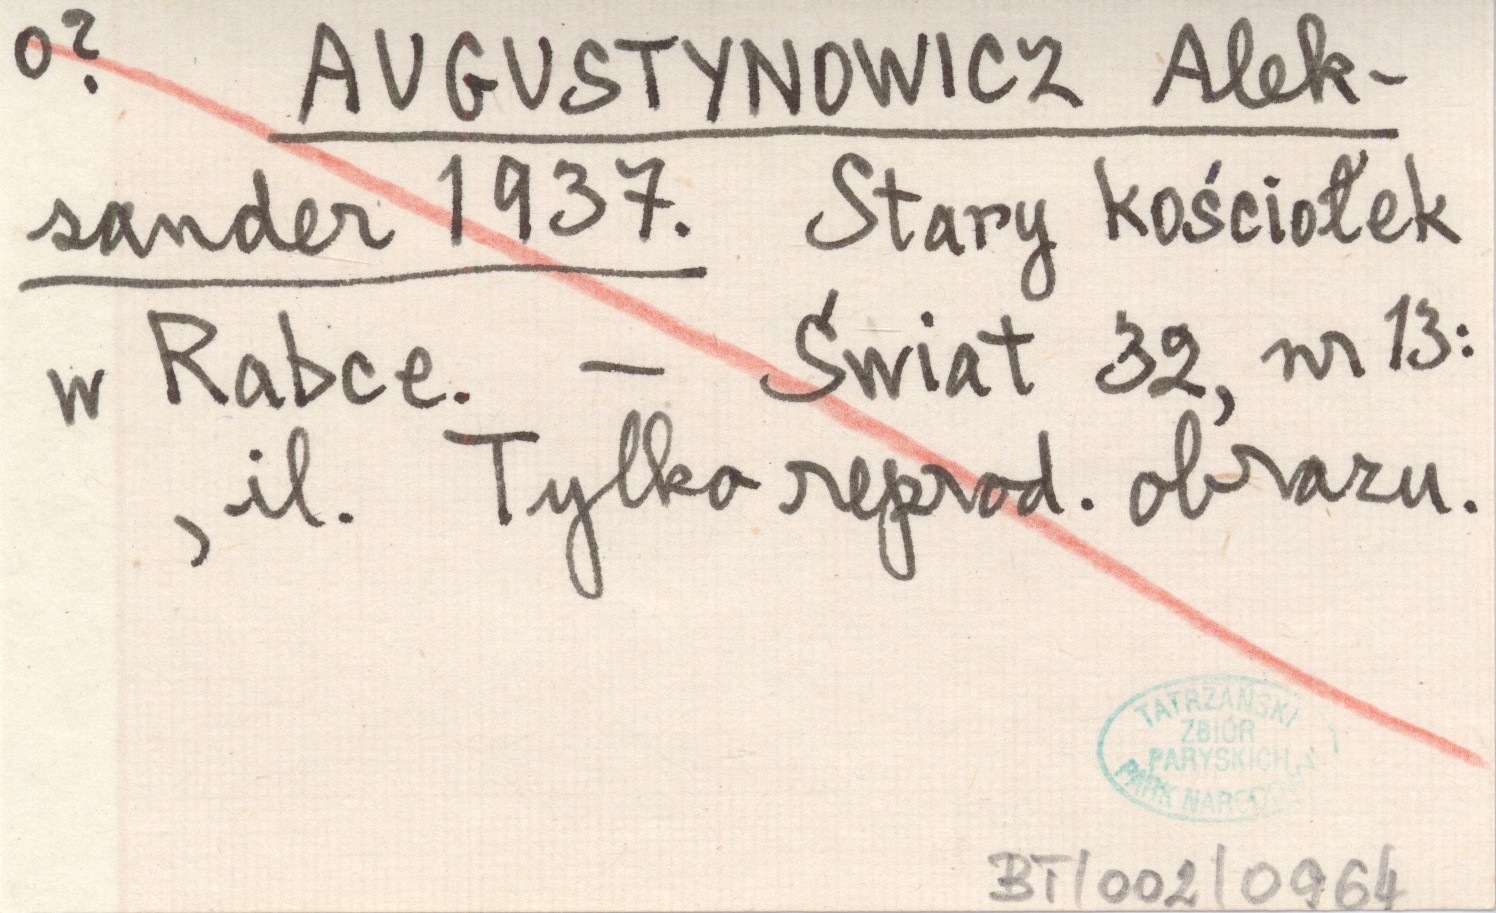 o? AUGUSTYNOWICZ Alek-
sander 1937. Stary kościołek
w Rabce. — Świat 32, nr 13:
, il. Tylko reprod. obrazu.
TATRZAŃSKI
ZBIÓR
PARYSKICH
PARK NARODOWY
BT/002/0964